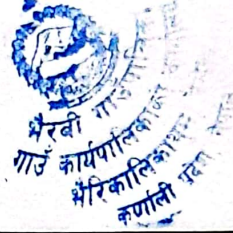 भैरवी गाउँपालिका
गाउँ कार्यपालिकाको
भैरिकालिकाथुम
कर्णाली प्रदेश